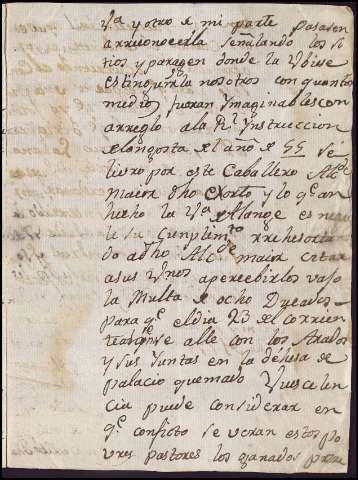 Va y otro de mi parte pasasen
a rreconocerla señalando los si
tios y parage en donde la Ubiese
estinguirla nosotros con quantos
medios fueran Ymaginables con
arreglo ala Rl Ynstruccion
de langosta de el año de 55 se
libro por este Caballero Alcde
maior dho Exorto y lo qe an
hecho la Va de Alange es
de su cumplimto rrehesorta
do adho Alcde maior citar
asus Vnos apercebirlos vajo
la Multa de ocho Ducados
para qe el dia 23 del corrien
te alle con los Arados
y sus Yuntas en la dehesa de
palacio quemado Vuscelen
cia puede considerar en
qe conflicto se veran estos po
vres pastores los ganados